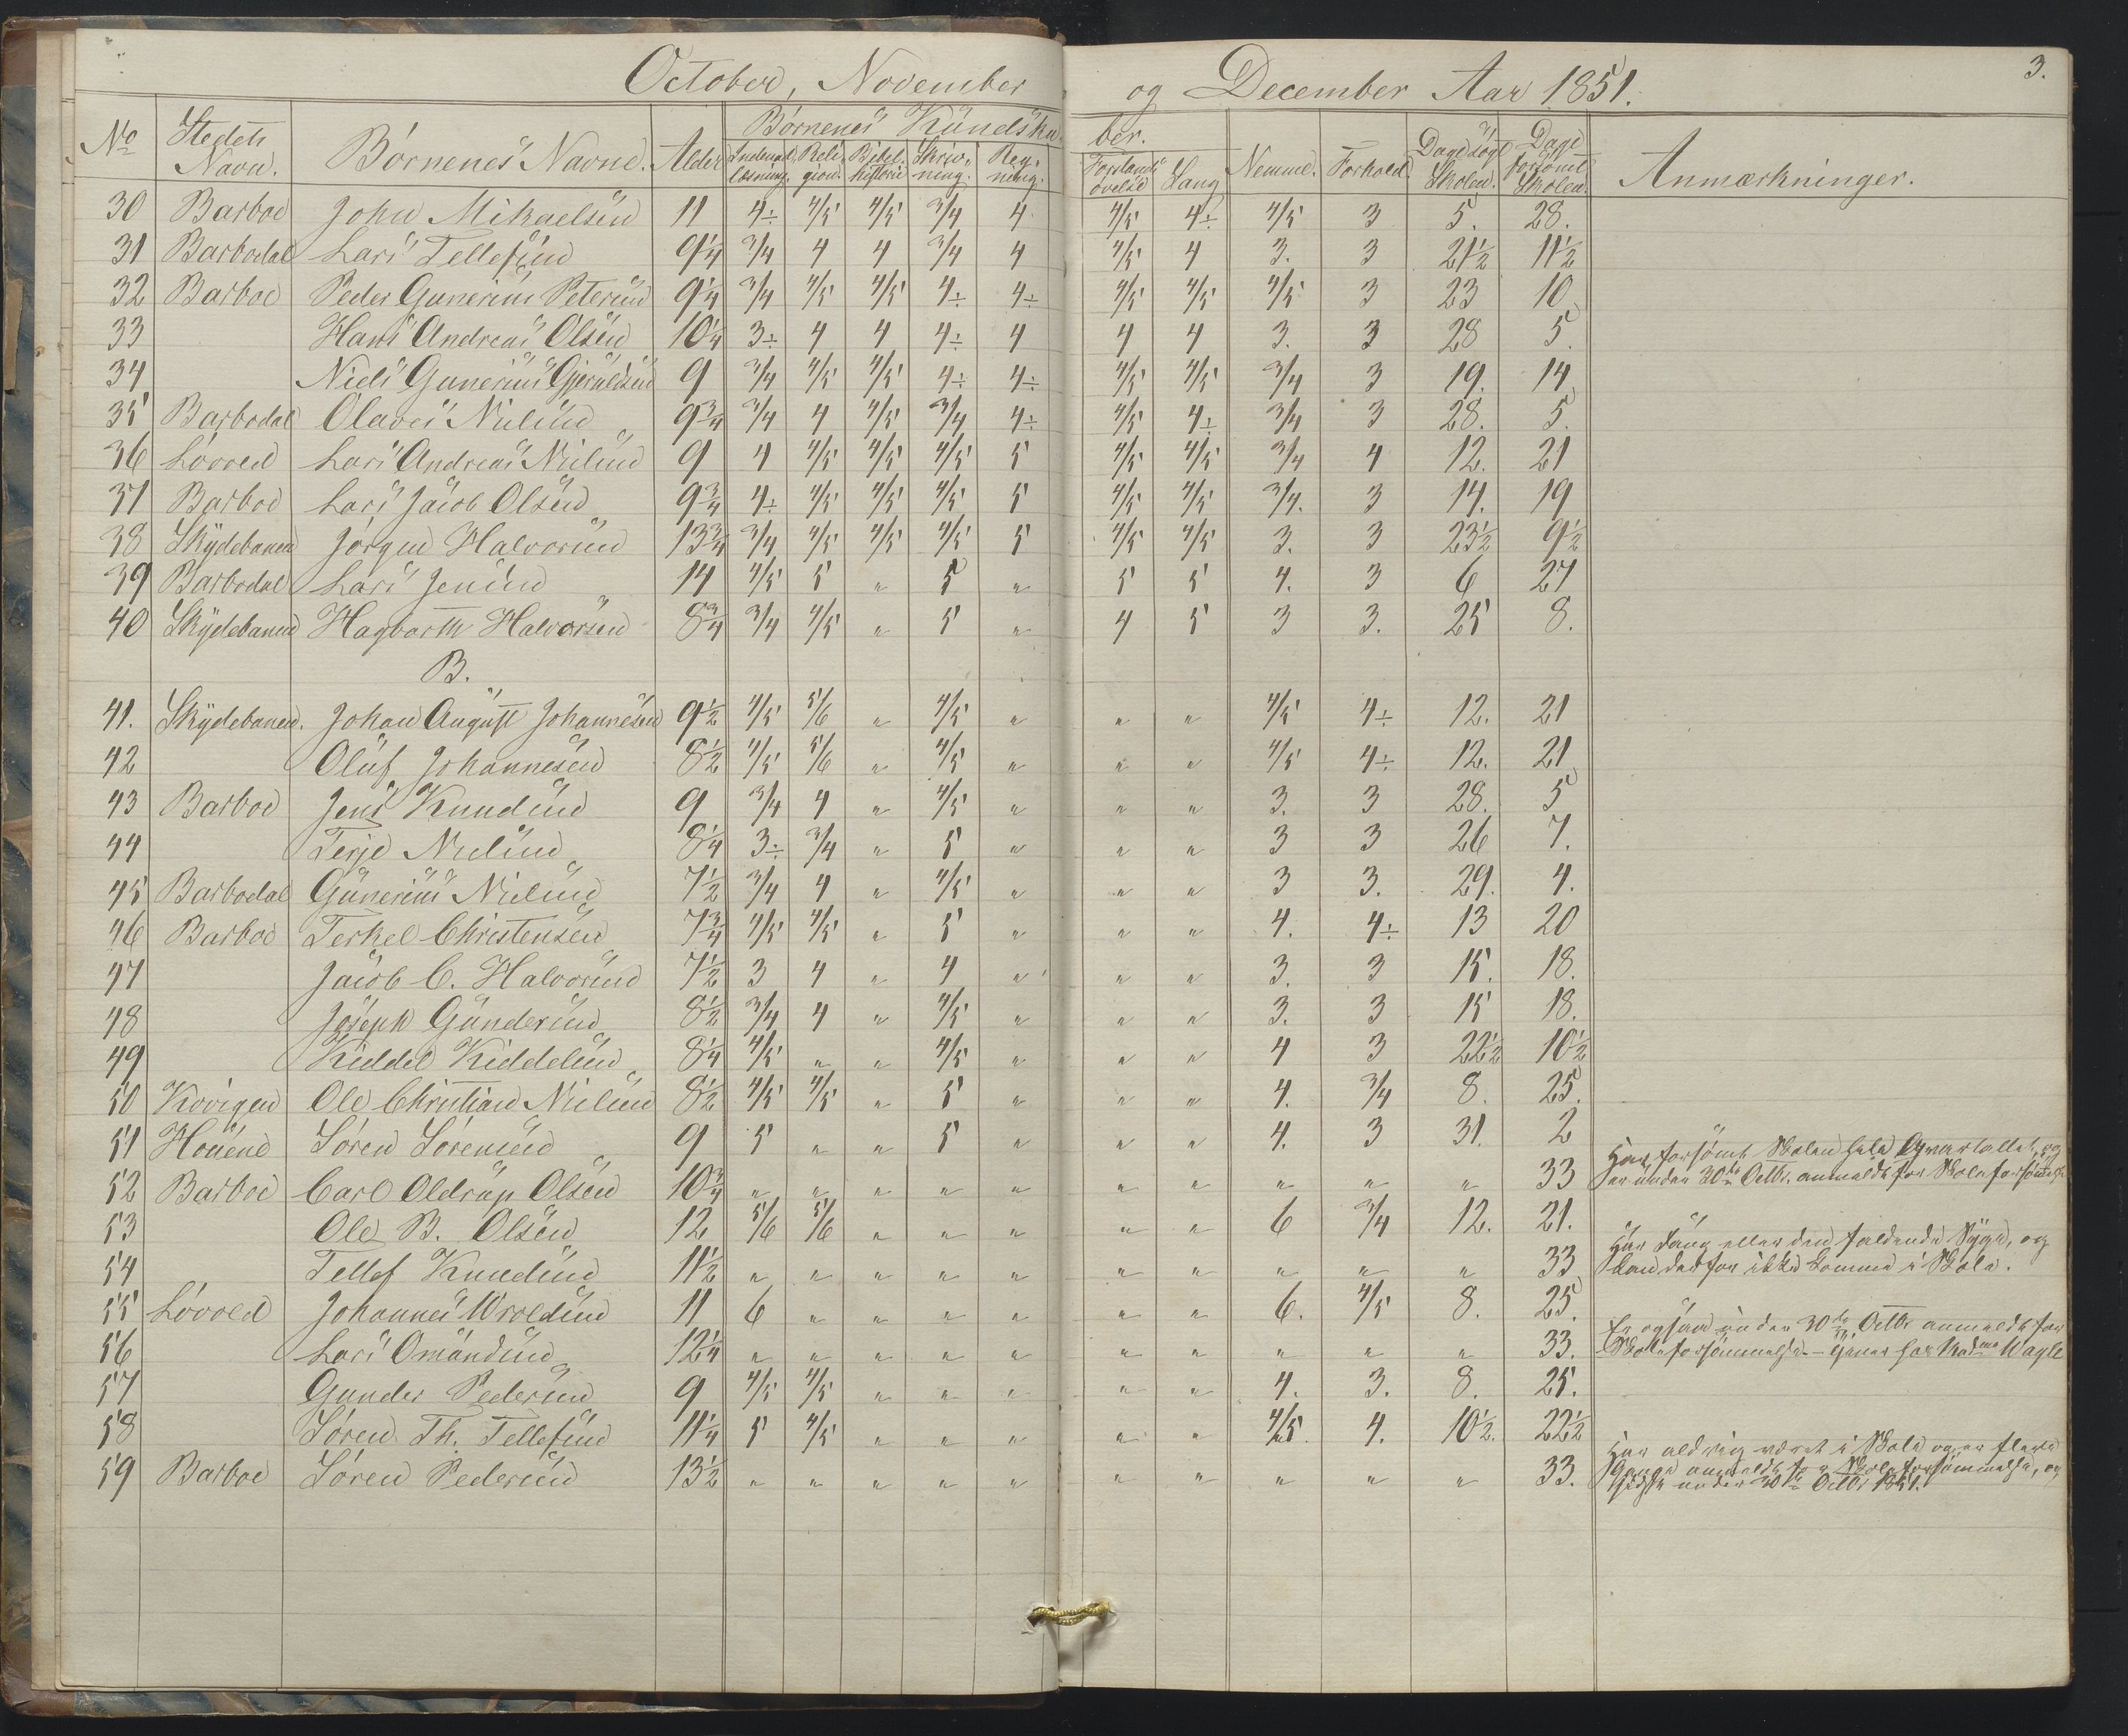 October, November og December Aar 1851. 3.
No Stedets Navn. Børnenes Navne. Alder Børnenes Kundskaber. Nemme. Forhold. Dage søgt Skolen. Dage forsømt Skolen. Anmærkninger.
Indenadlæsning. Religion. Bibelhistorie Skrivning. Regning. Forstandsøvelse Sang
30 Barboe John Mikaelsen 11 4÷ 4/5 4/5 3/4 4 4/5 4÷ 4/5 3 5. 28.
31 Barbodal Lars Tellefsen 9 1/4 3/4 4 4 3/4 4 4/5 4 3. 3 21 1/2 11 1/2
32 Barboe Peder Gunerius Petersen 9 1/4 3/4 4/5 4/5 4÷ 4÷ 4/5 4/5 4/5 3 23 10
33 Hans Andreas Olsen 10 1/4 3÷ 4 4 4÷ 4 4 4 3. 3 28 5.
34 Niels Gunerius Gjeruldsen 9 3/4 4/5 4/5 4÷ 4÷ 4/5 4/5 3/4 3 19. 14
35 Barbodal Olaves Nielsen 9 3/4 3/4 4 4/5 3/4 4÷ 4/5 4÷ 3/4 3 28. 5.
36 Løvold Lars Andreas Nielsen 9 4 4/5 4/5 4/5 5 4/5 4/5 3/4 4 12. 21
37 Barboe Lars Jacob Olsen 9 3/4 4÷ 4/5 4/5 4/5 5 4/5 4/5 3/4. 3 14. 19
38 Skydebanen Jørgen Halvorsen 13 3/4 3/4 4/5 4/5 4/5 5 4/5 4/5 3. 3 23 1/2 9 1/2
39 Barbodal Lars Jensen 14 4/5 5 " 5 " 5 5 4. 3 6 27
40 Skydebanen Hagbarth Halvorsen 8 3/4 3/4 4/5 " 5 " 4 5 3 3. 25 8.
B.
41. Skydebanen. Johan August Johannesen 9 1/2 4/5 5/6 " 4/5 " " " 4/5 4÷ 12. 21
42 Oluf Johannesen 8 1/2 4/5 5/6 " 4/5 " " " 4/5 4÷ 12. 21
43 Barboe Jens Knudsen 9 3/4 4 " 4/5 " " " 3. 3 28. 5
44 Terje Nielsen 8 1/4 3÷ 3/4 " 5 " " " 3 3 26 7.
45 Barbodal Gunerius Nielsen 7 1/2 3/4 4 " 4/5 " " " 3 3. 29. 4.
46 Barboe Terkel Christensen 7 3/4 4/5 4/5 " 5 " " " 4. 4÷ 13 20
47 Jacob C. Halvorsen 7 1/2 3 4 " 4 " " " 3. 3 15. 18.
48 Joseph Gundersen 8 1/2 3/4 4 " 4/5 " " " 3. 3 15 18.
49 Kiddel Kiddelsen 8 1/4 4/5 " " 4/5 " " " 4 3 22 1/2 10 1/2
50 Kovigen Ole Christian Nielsen 8 1/2 4/5 4/5 " 5 " " " 4. 3/4 8. 25.
51 Houene Søren Sørensen 9 5 " " 5 " " " 4. 3 31. 2
52 Barboe Carl Oldrup Olsen 10 3/4 " " " " " " " " " " 33 Har forsømt Skolen hele Qvartallet, og
er under 30te Octbr. anmeldt for Skoleforsømmelse
53 Ole B. Olsen 12 5/6 5/6 " " " " " 6 3/4 12. 21.
54 Tellef Knudsen 11 1/2 " " " " " " " " " " 33 Har Slaug eller den faldende Syge, og
kan derfor ikke komme i Skole.
55 Løvold Johannes Wroldsen 11 6 " " " " " " 6. 4/5 8. 25.
56 Lars Omundsen 12 1/4 " " " " " " " " " " 33. Er ogsaa under 30te Octbr anmeldt for
Skoleforsømmelse. – tjener hos Madme Wagle
57 Gunder Pedersen 9 4/5 4/5 " " " " " 4. 3. 8. 25.
58 Søren Th. Tellefsen 11 1/4 5 4/5 " " " " " 4/5. 4. 10 1/2. 22 1/2
59 Barboe Søren Pedersen 13 1/2 " " " " " " " " " " 33. Har aldrig været i Skole og er flere
Gange anmeldt for Skoleforsømmelse, og
sidst under 30te Octbr 1851.